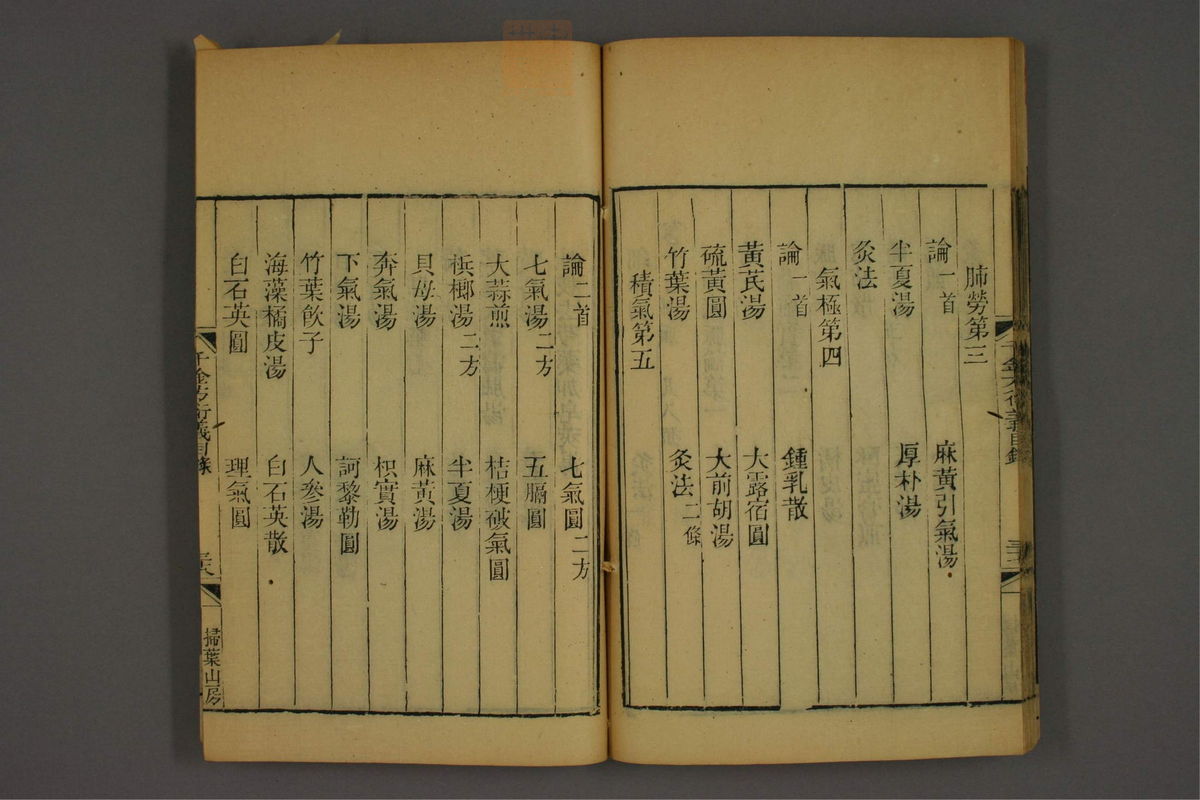 肺勞第三
論一首 麻黃引氣湯
半夏湯 厚朴湯
灸法
氣極第四
論一首 鍾乳散
黃芪湯 大露宿圓
硫黃圓 大前胡湯
竹葉湯 灸法二條
積氣第五
論二首 七氣圓二方
七氣湯二方 五膈圓
大蒜煎 桔梗破氣圓
檳榔湯二方 半夏湯
貝母湯 麻黃湯
奔氣湯 枳實湯
下氣湯 訶黎勒圓
竹葉飲子 人參湯
海藻橘皮湯 白石英散
白石英圓 理氣圓
千金方衍義目錄 三八 掃葉山房